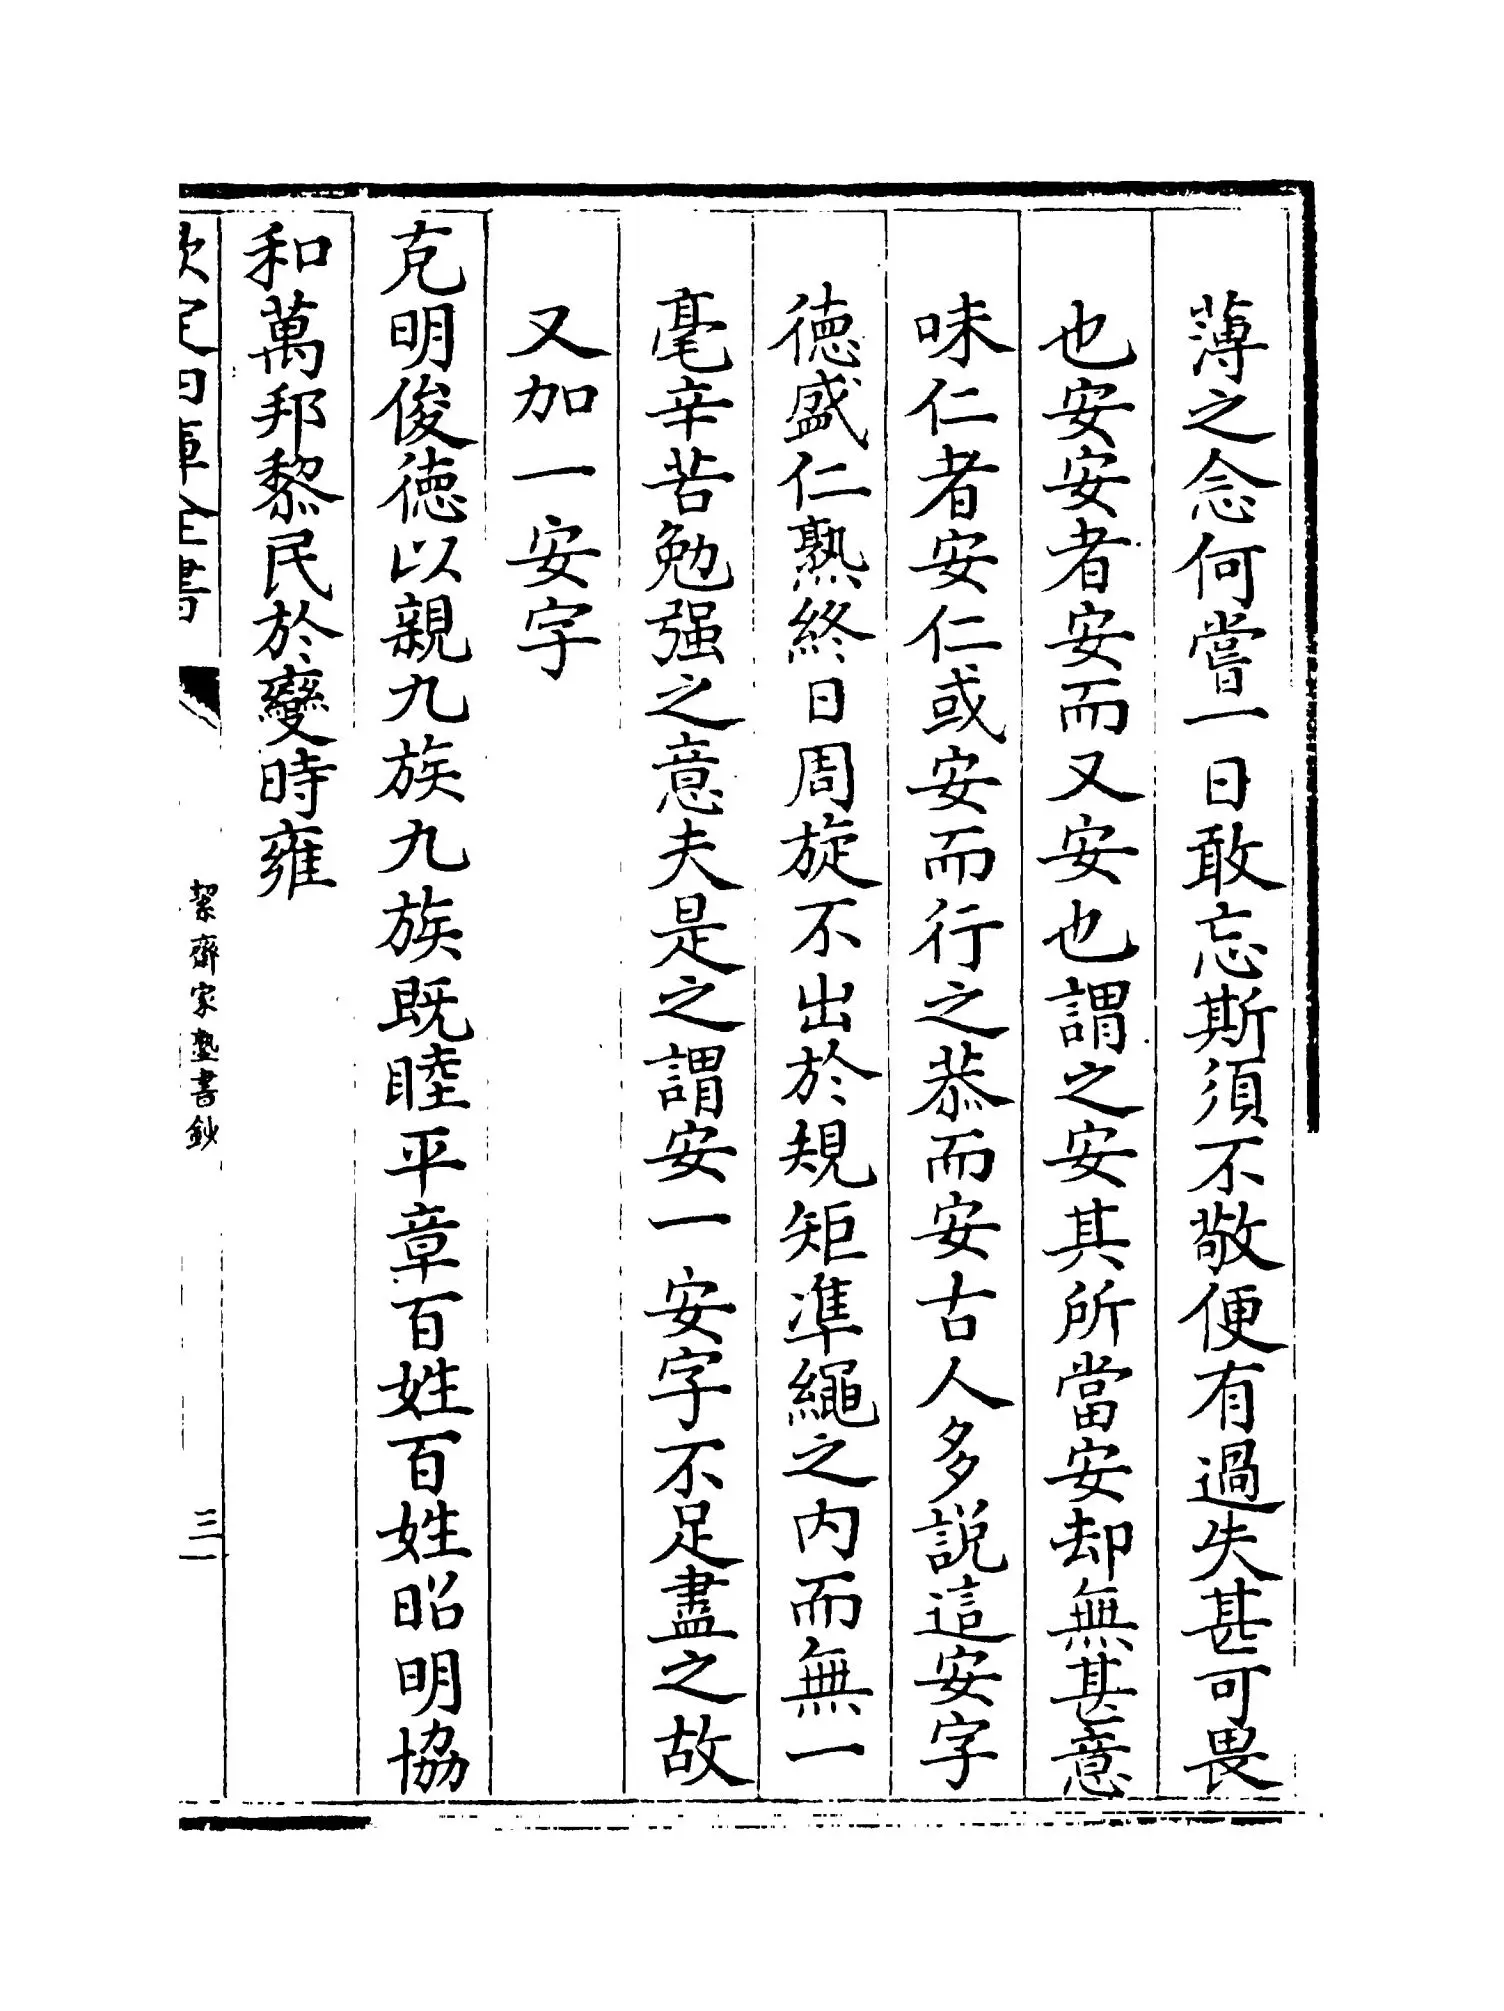 薄之念何嘗一日敢忘斯須不敬便有過失甚可畏
也安安者安而又安也謂之安其所當安却無甚意
味仁者安仁或安而行之恭而安古人多說這安字
徳盛仁熟終日周旋不出於規矩準繩之内而無一
毫辛苦勉强之意夫是之謂安一安字不足盡之故
又加一安字
克明俊徳以親九族九族既睦平章百姓百姓昭明協
和萬邦黎民於變時雍
欽定四庫全書
絜齋家塾書鈔
三